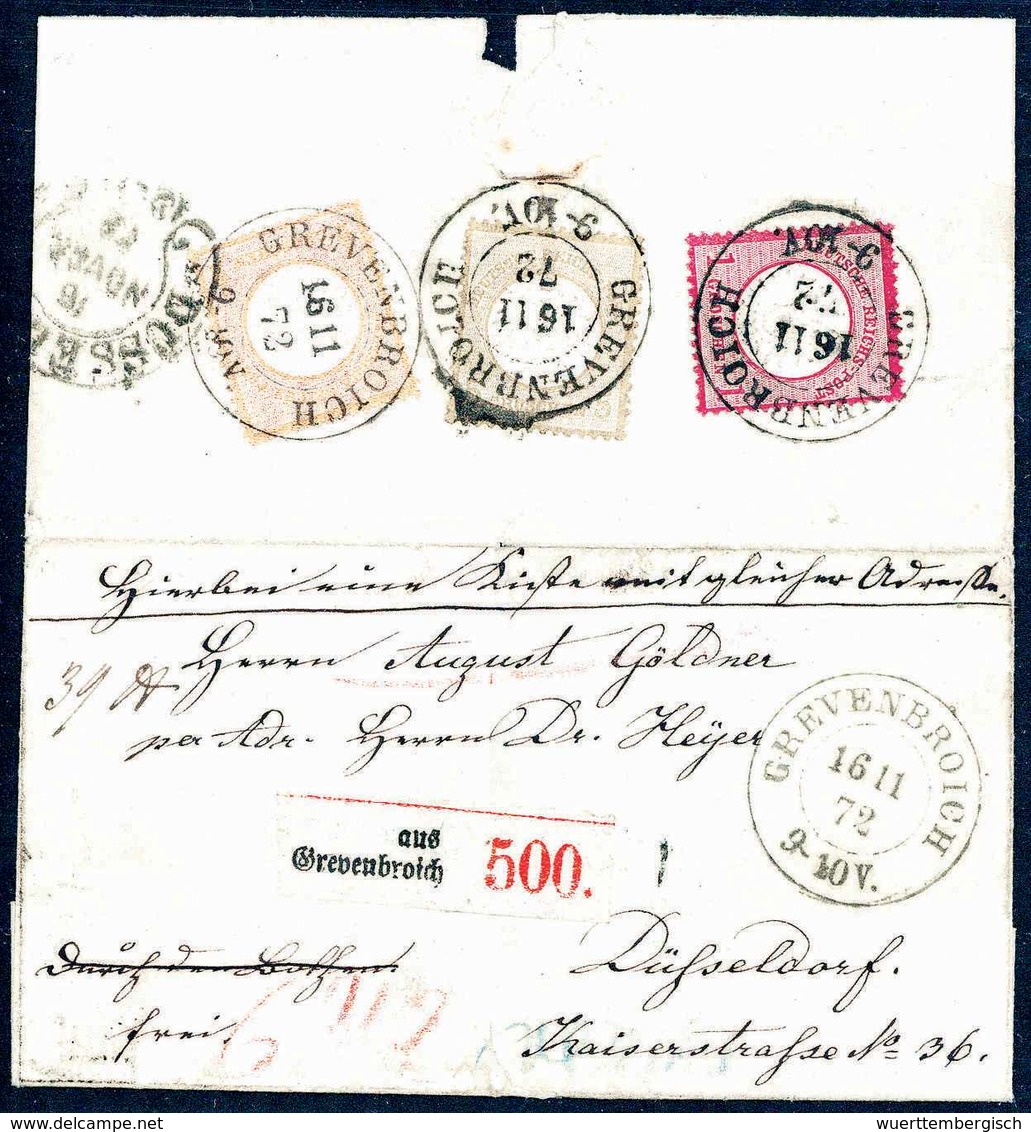 GREVENBROICH
16 11
72
GREVENBROICH
16 11
72
9-10V.
GREVENBROICH
16 11
72
9-10V.
DEUTSCHE REICHS-POST
1 1
1 1
NOVBR
Hierbei eine Kiste mit gleicher Adresse.
39 ℔
Herrn August Göldner
per Adr. Herrn Dr. Heyer
GREVENBROICH
16 11
72
9-10V.
aus
Grevenbroich
500.
Düsseldorf.
durch den Bothen
frei.
Kaiserstrasse No 36.
wuerttembergisch